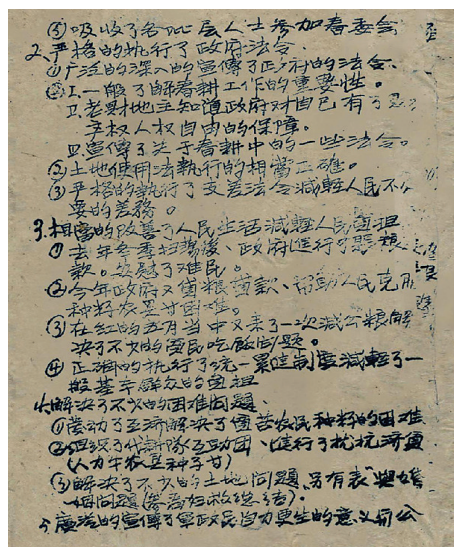 ⑤吸收了各阶层人士参加春委会
2、严格的执行了政府法令.
①广泛的深入的宣傳了政府的法令、
②I.一般了解春耕工作的重要性。
II.老财地主知道政府对自己有了
产权人权自由的保障。
III.宣傳了关于春耕中的一些法令。
②土地使用法執行的相當正確。
③严格的執行了支差法令減輕人民不必
要的差務。
3.相當的改善了人民生活減輕人民負担
①去年冬季扫荡後、政府進行了賑粮
款。安慰了难民。
②今年政府又貸粮貸款、帮助人民克服
种籽农具等困难。
③在红的五月当中又来了一次減公粮解
决了不少的貧民吃飯问题。
④正确的执行了统一累進制度減輕了一
般基本群众的負担
4.解决了不少的困难问题.
①發动了互济解决了貧苦农民种籽的困难
②组织了代耕隊互助団、進行了抗抗济貧
(人力牛农具种子等)
③解决了不少的土地问题、另有表"
5.廣泛的宣傳了軍政民自力更生的意义前公